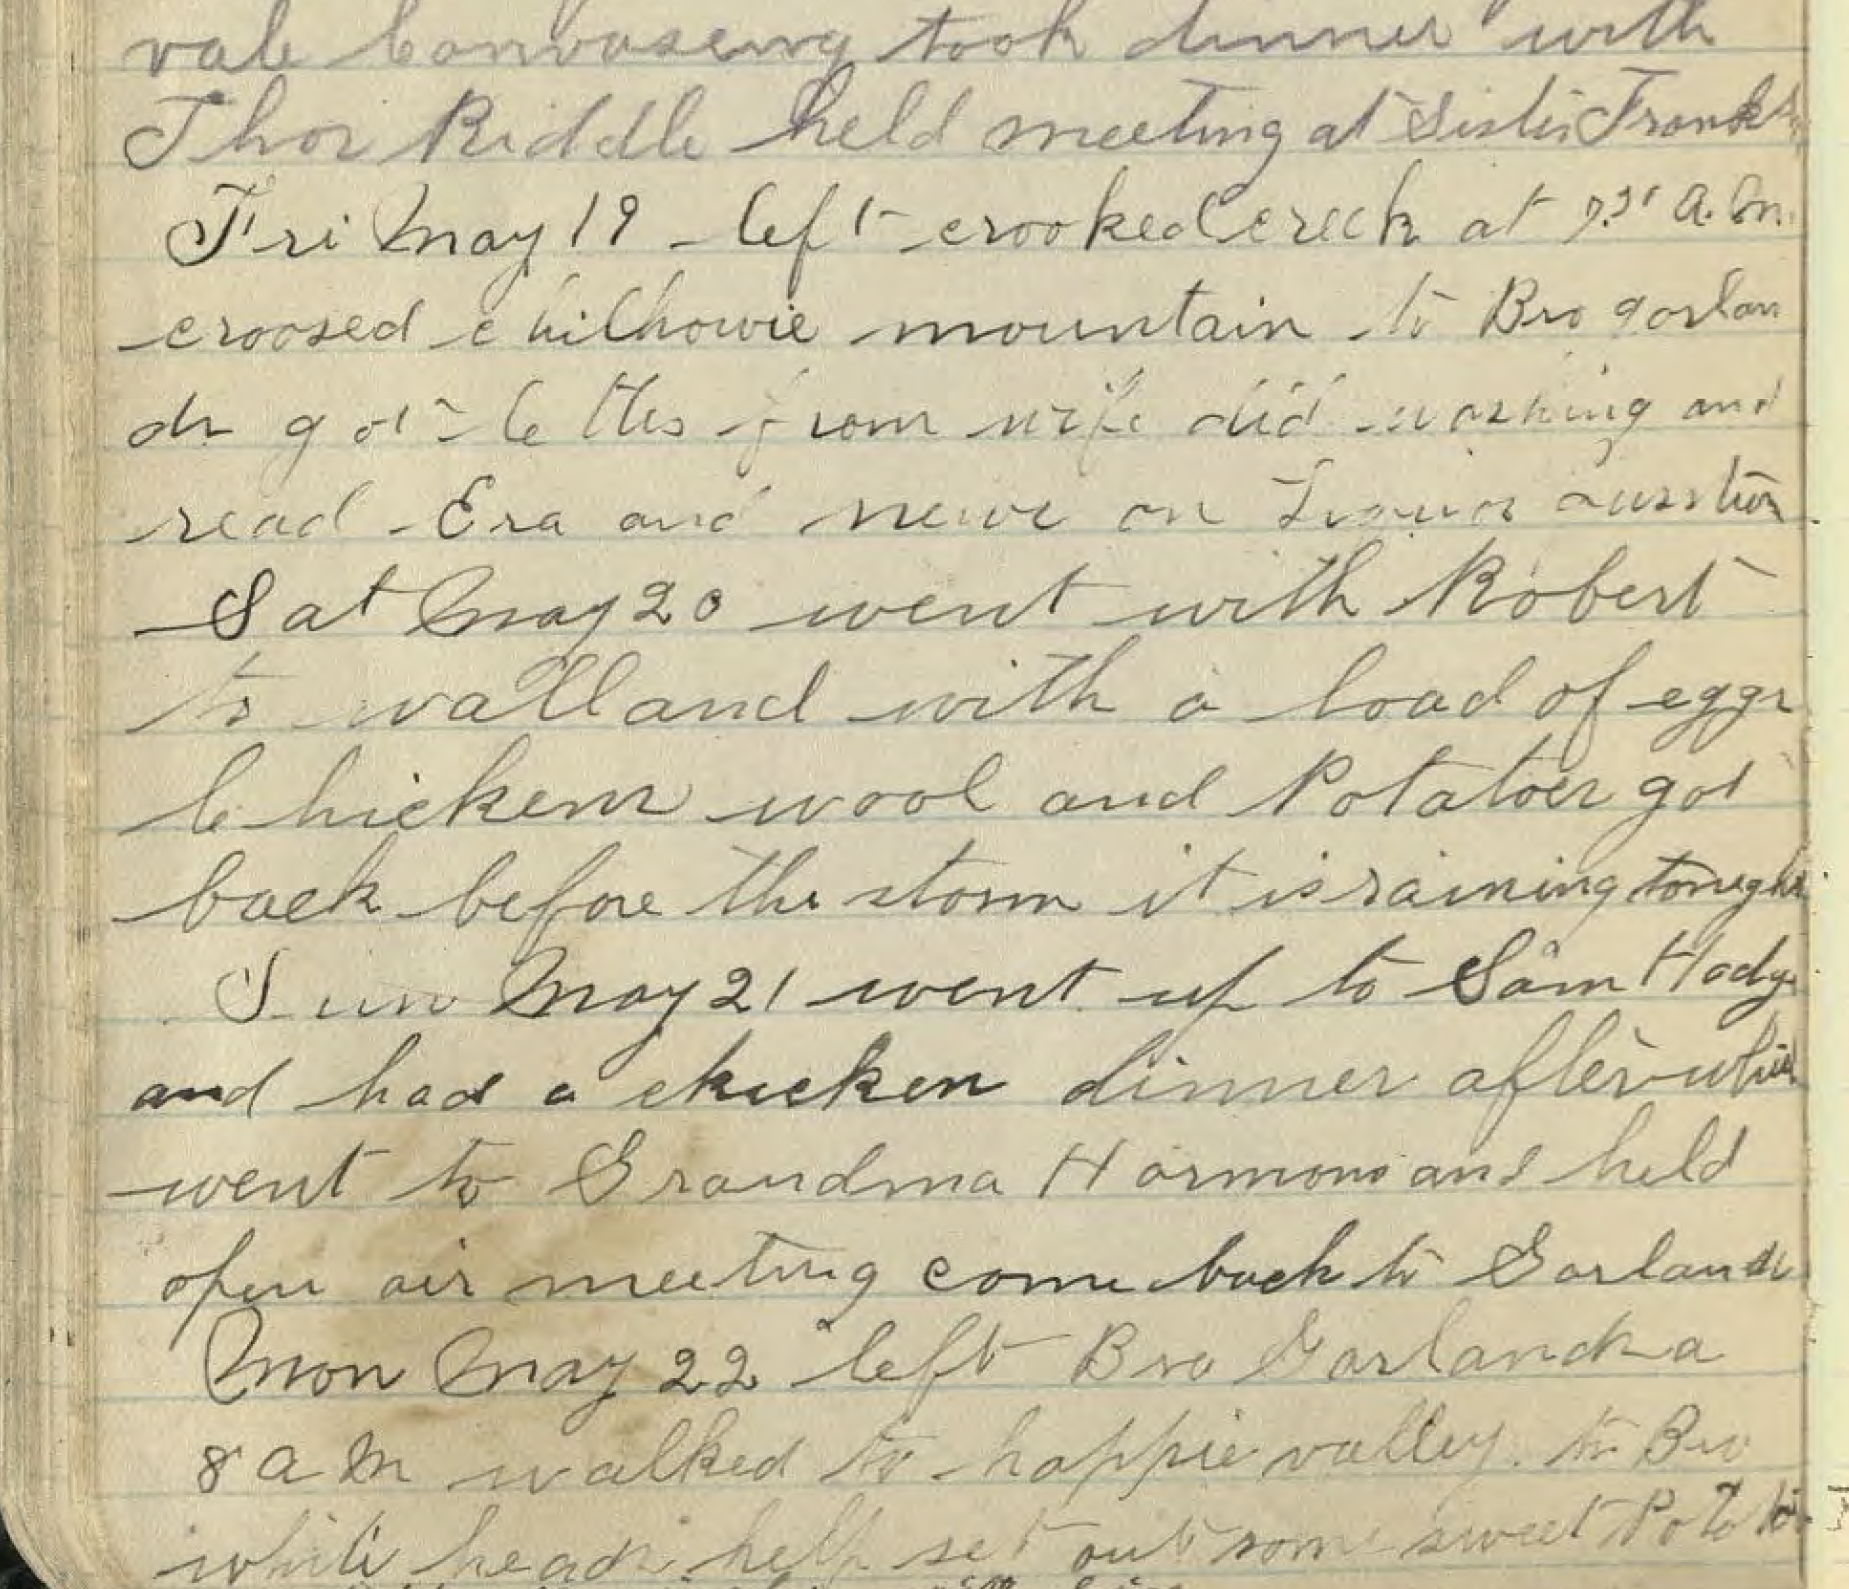 vale Canvaseing took dinner with
Thos Riddle held meeting at Sister Franks
Fri May 19 left crooked creek at A.M.
croosed chilhowie mountain to Bro garlan
ds got letters from wife did washing and
read Era and news on Liquor question
Sat May 20 went with Robert
to walland with a load of eggs
Chickens wool and Potatoes got
back before the storm it is raining tonight
Sun May 21 went up to Sam Hodg
and had a chicken dinner after which
went to Grandma Harmons and held
open air meeting come back to Garlands
Mon May 22 left Bro Garlands a
8 a m walked to happie valley. to Bro
white heads help set out some sweet Potatoes